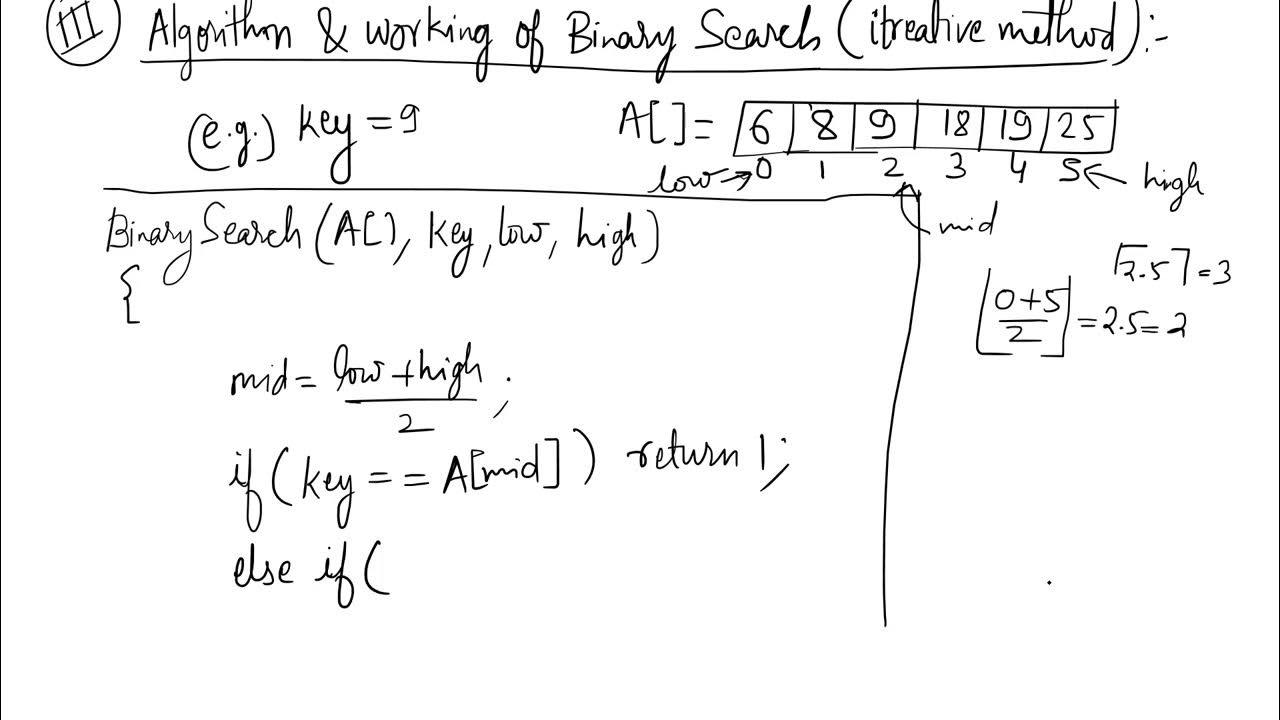 III Algorithm & working of Binary Search (itreative method):-
(e.g.) key = 9 A[] = 6 8 9 18 19 25
low → 0 1 2 3 4 5 ← high
mid
BinarySearch (A[], key, low, high)
{
⌈2.5⌉ = 3
⌊0+5/2⌋ = 2.5 = 2
mid = low+high/2 ;
if (key == A[mid]) return 1;
else if (